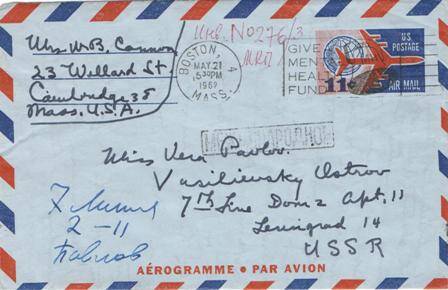 Mrs W B. Cannon
23 Willard St.
Cambridge 38
Mass. U.S.A.
Инв. № 276/3
BOSTON, 4
MAY. 21
5 30PM
1962
MASS.
GIVE
MENT
HEAL
FUND
U.S.
POSTAGE
11¢
AIR MAIL
МЕЖДУНАРОДНОЕ
Miss Vera Pavlov.
Vasilievsky Ostrov
7th Line Dom 2 Apt. 11
Leningrad 14
USSR
7 линия
2-11
Павлов
AÉROGRAMME • PAR AVION